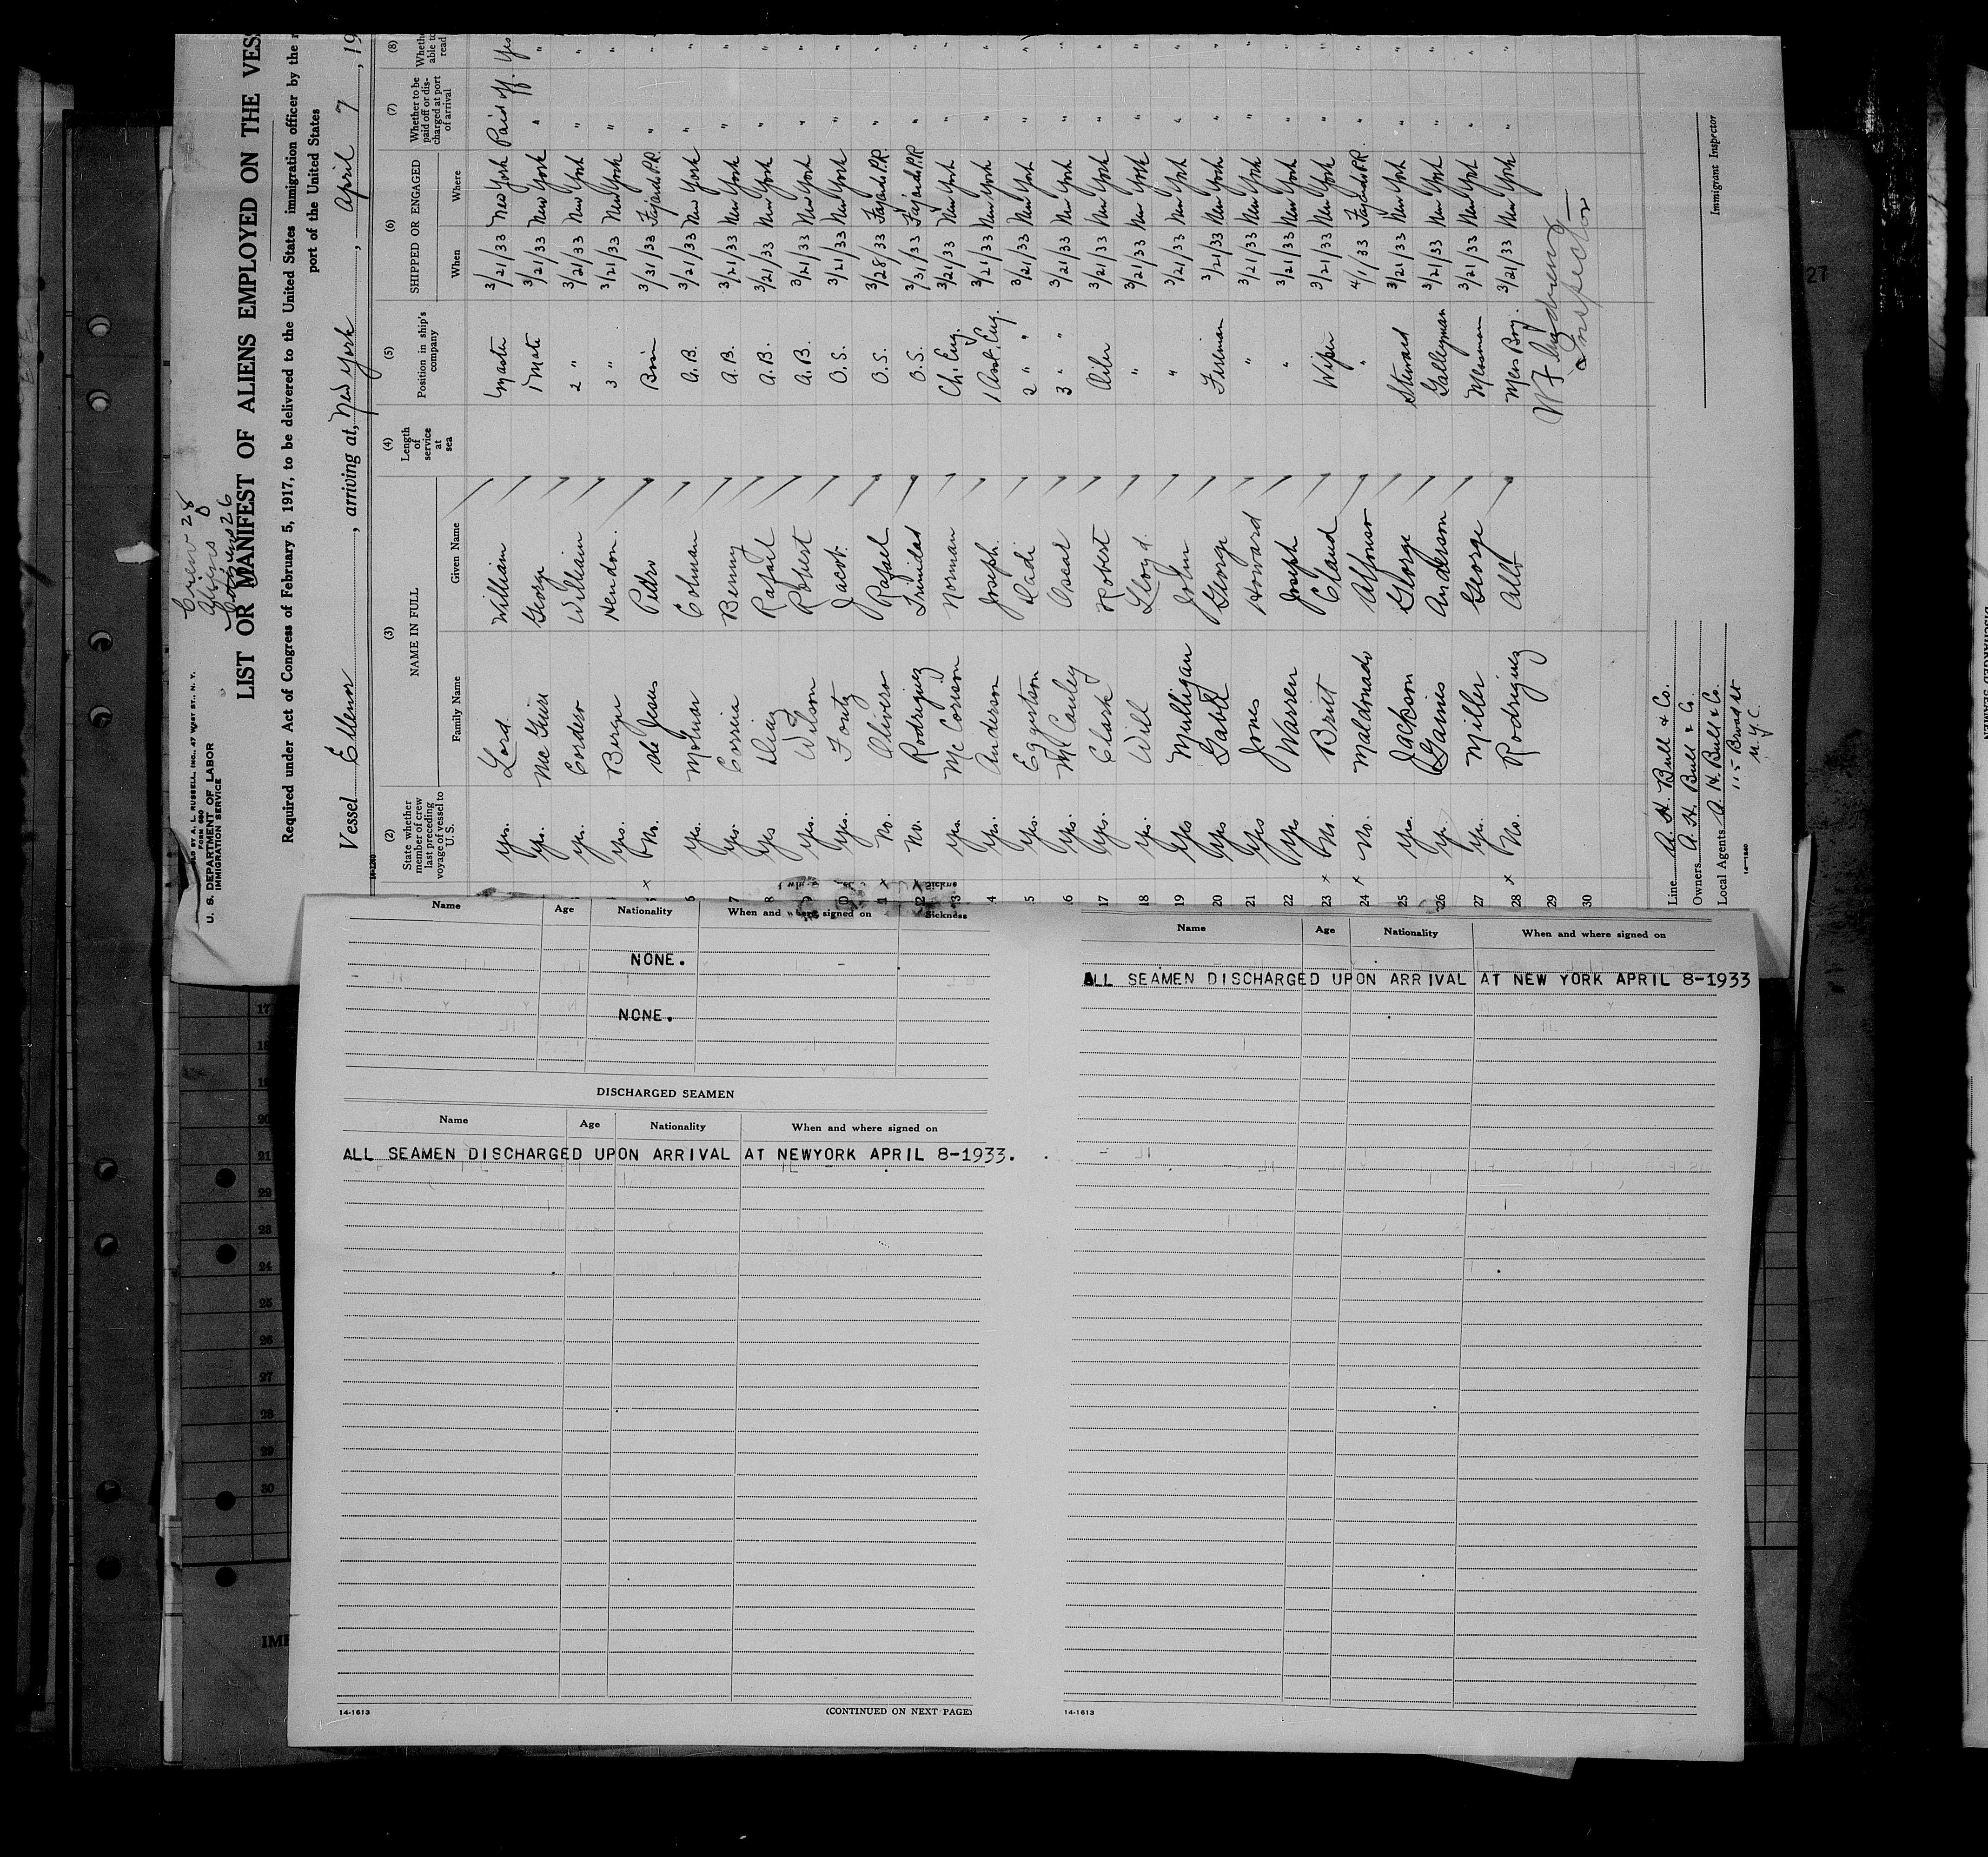 Crew 28
Aliens 0
Citizens 26
A. L. RUSSELL, Inc., 47 Water St., N. Y.
Form 680
U. S. DEPARTMENT OF LABOR
IMMIGRATION SERVICE
LIST OR MANIFEST OF ALIENS EMPLOYED ON THE VESS
Required under Act of Congress of February 5, 1917, to be delivered to the United States immigration officer by the r
port of the United States
Vessel Ellenor, arriving at, New York, April 7, 19
(2) (3) (4) (5) (6) (7) (8)
State whether member of crew last preceding voyage of vessel to U. S. NAME IN FULL Length of service at sea Position in ship's company SHIPPED OR ENGAGED Whether to be paid off or discharged at port of arrival Whethe able to read
Family Name Given Name When Where
yes. Lord William Master 3/21/33 New York Paid off. Yes
yes. Mc Guire George 1 Mate 3/21/33 New York " "
yes. Cordero William 2 " 3/21/33 New York " "
yes. Berge Hendon. 3 " 3/21/33 New York " "
5 x No. de Jesus Pedro Bosn 3/31/33 Fajardo P.R. " "
6 yes. Molinar Colman A.B. 3/21/33 New York " "
7 yes. Correia Benny A.B. 3/21/33 New York " "
8 yes Diaz Rafael A.B. 3/21/33 New York " "
9 yes. Wilson Robert A.B. 3/21/33 New York " "
10 yes. Foutz Jacob. O.S. 3/21/33 New York " "
11 x No. Olivero Rafael O.S. 3/28/33 Fajardo P.R. " "
12 x No. Rodriguez Trinidad O.S. 3/31/33 Fajardo P.R. " "
13 yes. Mc Corison Norman Ch. Eng. 3/21/33 New York " "
4 yes. Anderson Joseph. 1 Asst. Eng. 3/21/33 New York " "
5 yes. Eggertson Dadi 2 " " 3/21/33 New York " "
6 yes. Mc Cauley Oscar 3 " " 3/21/33 New York " "
17 yes. Clark Robert Oiler 3/21/33 New York " "
18 yes. Will Lloyd. " 3/21/33 New York " "
19 yes Mulligan John " 3/21/33 New York " "
20 yes Gable George Fireman 3/21/33 New York " "
21 yes Jones Howard " 3/21/33 New York " "
22 yes Warren Joseph " 3/21/33 New York " "
23 x No. Britt Claud Wiper 3/21/33 New York " "
24 x No. Maldonado Alfonso " 4/1/33 Fajardo P.R. " "
25 yes. Jackson George Steward 3/21/33 New York " "
26 yes. Gaines Anderson Galleyman 3/21/33 New York " "
27 yes. Miller George Messman 3/21/33 New York " "
28 x No. Rodriguez Mess Boy. 3/21/33 New York " "
29
30
Inspector
Immigrant Inspector
Line A. H. Bull & Co.
Owners A. H. Bull & Co.
Local Agents A. H. Bull & Co.
115 Broad St
N.Y.C.
Name Age Nationality When and where signed on Sickness
NONE.
NONE.
DISCHARGED SEAMEN
Name Age Nationality When and where signed on
ALL SEAMEN DISCHARGED UPON ARRIVAL AT NEWYORK APRIL 8-1933.
14-1613 (CONTINUED ON NEXT PAGE)
Name Age Nationality When and where signed on
ALL SEAMEN DISCHARGED UPON ARRIVAL AT NEW YORK APRIL 8-1933
14-1613
17
18
19
20
21
22
23
24
25
26
27
28
29
30
IMI
27